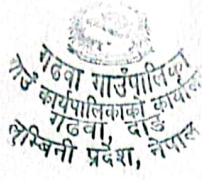 गढवा गाउँपालिका
गाउँ कार्यपालिकाको कार्यालय
गढवा, दाङ
लुम्बिनी प्रदेश, नेपाल